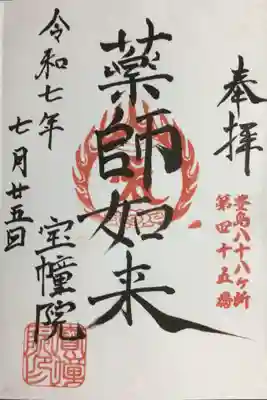 奉拝
豊島八十八ヶ所
第四十五番
薬師如来
宝幢院
令和七年
七月廿五日